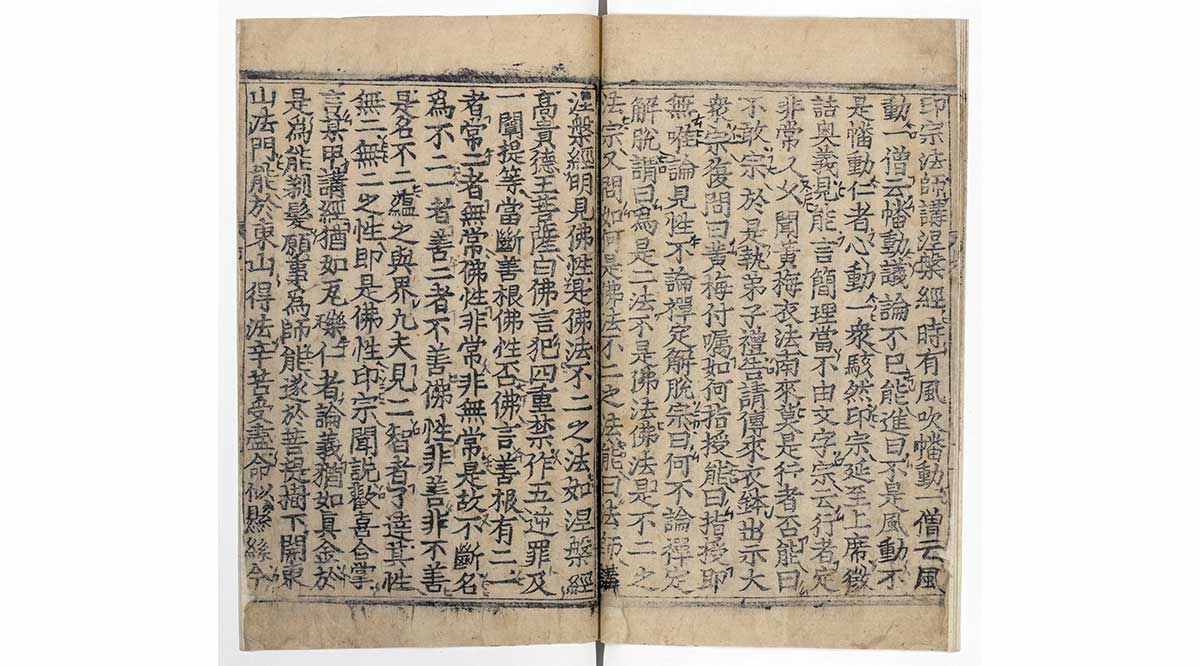 印宗法師講涅槃經時有風吹幡動一僧云風
動一僧云幡動議論不已能進曰不是風動不
是幡動仁者心動一衆駭然印宗延至上席徵
詰奧義見能言簡理當不由文字宗云行者定
非常人久聞黃梅衣法南來莫是行者否能曰
不敢宗於是執弟子禮告請傳來衣鉢出示大
衆宗復問曰黃梅付囑如何指授能曰指授即
無唯論見性不論禪定解脫宗曰何不論禪定
解脫謂曰爲是二法不是佛法佛法是不二之
法宗又問如何是佛法不二之法能曰法師講
涅槃經明見佛性是佛法不二之法如涅槃經
高貴德王菩薩白佛言犯四重禁作五逆罪及
一闡提等當斷善根佛性否佛言善根有二一
者常二者無常佛性非常非無常是故不斷名
為不二一者善二者不善佛性非善非不善
是名不二蘊之與界凡夫見二智者了達其性
無二無二之性即是佛性印宗聞說歡喜合掌
言某甲講經猶如瓦礫仁者論義猶如真金於
是為能剃髮願事為師能遂於菩提樹下開東
山法門能於東山得法辛苦受盡命似懸絲今